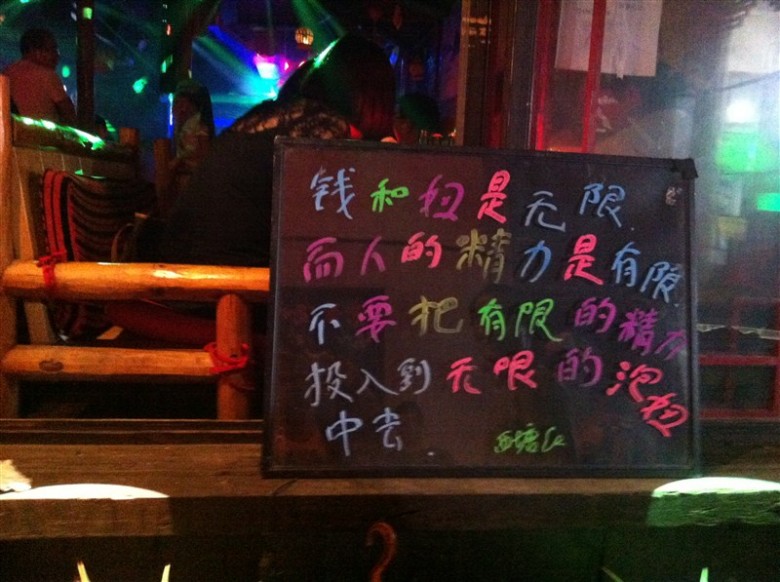 钱和扭是无限.
而人的精力是有限.
不要把有限的精力
投入到无限的泡扭
中去.
西塘